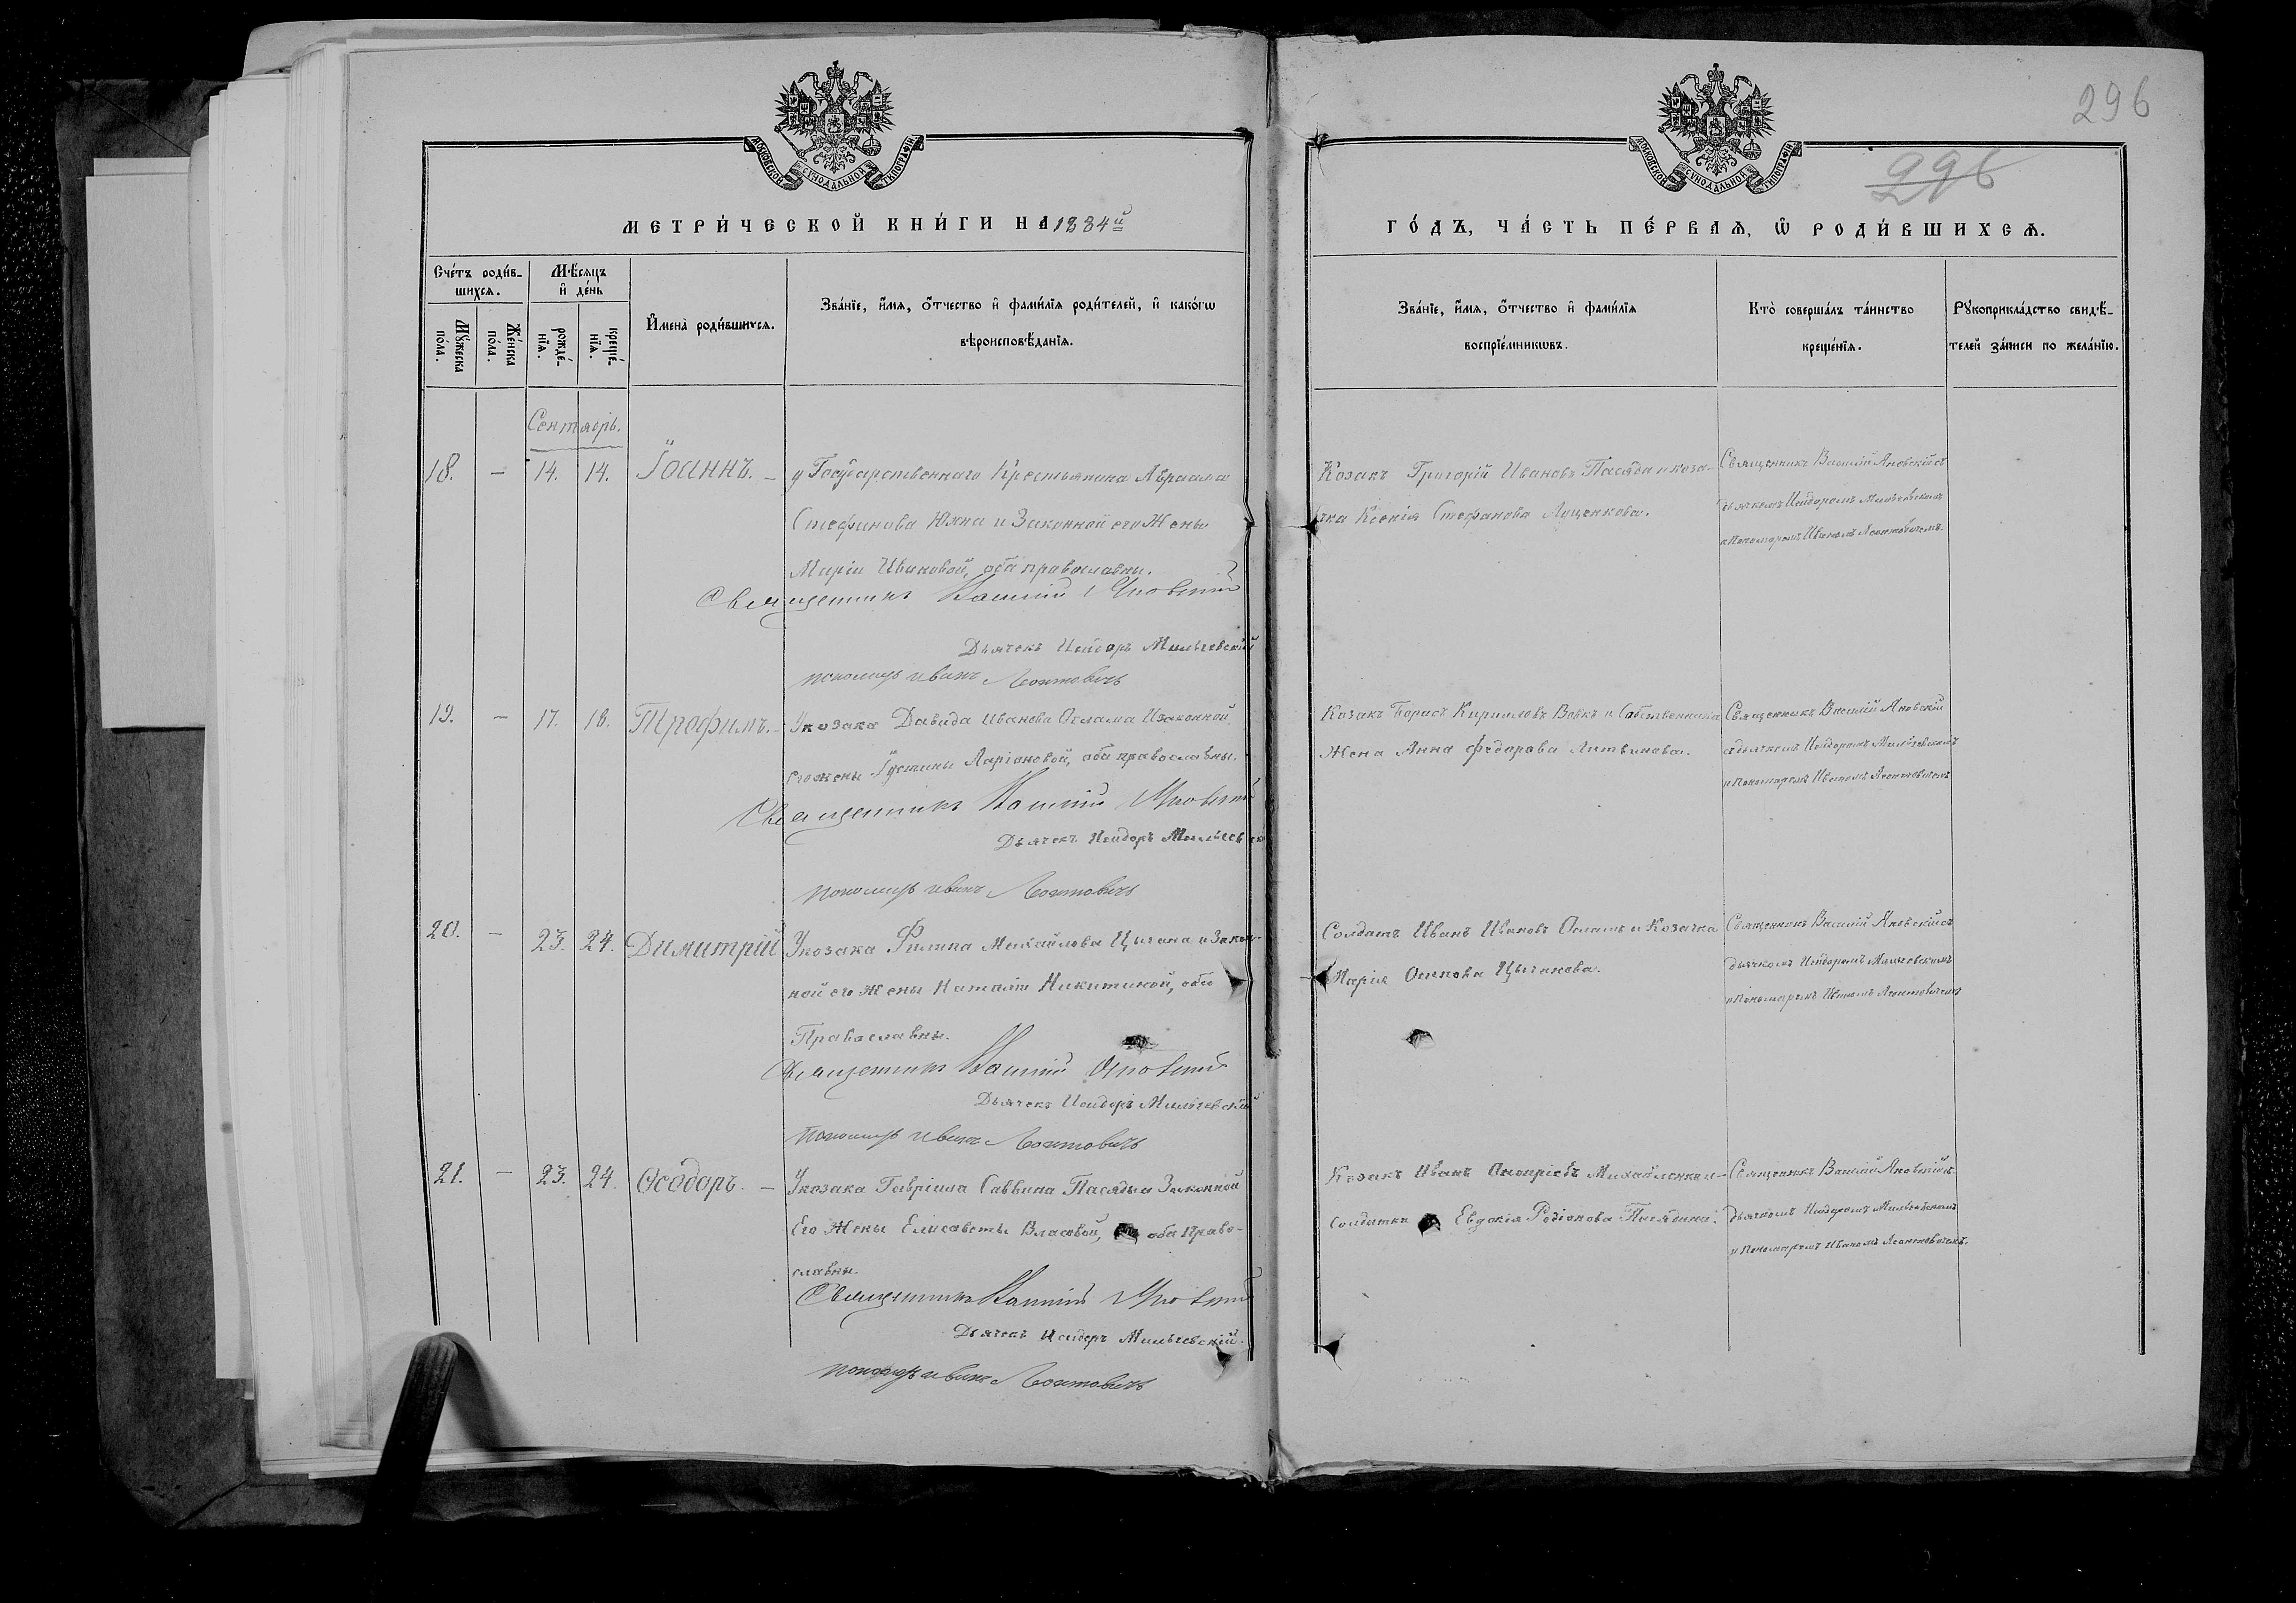 296
296
МОСКОВСКОЙ СѴНОДАЛЬНОЙ ТИПОГРАФІИ
МОСКОВСКОЙ СѴНОДАЛЬНОЙ ТИПОГРАФІИ
МЕТРИ́ЧЕСКОЙ КНИ́ГИ НА 1884й
ГО́ДЪ, ЧА́СТЬ ПЕ́РВАѦ, Ѡ РОДИ́ВШИХСѦ.
Сче́тъ роди́в-
шихсѧ.
Мѣ́сѧцъ
и҆ де́нь
Мꙋ́жеска
по́ла.
Же́нска
по́ла.
рожде́-
нїѧ.
креще́-
нїѧ.
И҆мена̀ роди́вшихсѧ.
Зва́нїе, и҆́мѧ, ѻ҆́тчество и҆ фами́лїѧ роди́телей, и҆ како́гѡ
вѣроисповѣ́данїѧ.
Зва́нїе, и҆́мѧ, ѻ҆́тчество и҆ фами́лїѧ
воспрїе́мникѡвъ.
Кто̀ соверша́лъ та́инство
креще́нїѧ.
Рꙋкоприкла́дство свидѣ́-
телей за́писи по жела́нїю.
Сентябрь.
18. — 14. 14. Іоаннъ. —
у Государственнаго Крестьянина Авраама
Стефанова Юхна и Законной его Жены
Маріи Ивановой, оба православны.
Священникъ Василій Яновскій
Дьячекъ Исидоръ Мильчевскій
пономарь иванъ Леонтовичъ
Козакъ Григорій Ивановъ Пасяда и коза-
чка Ксенія Стефанова Луценкова.
Священникъ Василій Яновскій съ
дьячкомъ Исидоромъ Мильчевскимъ
и Пономаремъ Иваномъ Леонтовичемъ.
19. — 17. 18. Трофимъ. —
У козака Давида Иванова Ослама и законной
его жены Іустины Ларіоновой, оба православны.
Священникъ Василій Яновскій
Дьячекъ Исидоръ Мильчевск
пономарь иванъ Леонтовичъ
Козакъ Борисъ Кирилловъ Вовкъ и Собственника
Жена Анна Федорова Литвинова.
Священникъ Василій Яновскій
съ дьячкомъ Исидоромъ Мильчевскимъ
и Пономаремъ Иваномъ Леонтовичемъ
20. — 23. 24. Димитрій
У козака Филипа Михайлова Цыгана и Закон-
ной его Жены Наталіи Никитиной, оба
Православны.
Священникъ Василій Яновскій
Дьячекъ Исидоръ Мильчевскій
пономарь иванъ Леонтовичъ
Солдатъ Иванъ Ивановъ Осламъ и Козачка
Марія Осипова Цыганова.
Священникъ Василій Яновскій съ
дьячкомъ Исидоромъ Мильчевскимъ
и Пономаремъ Иваномъ Леонтовичемъ
21. — 23. 24. Ѳеодоръ. —
У козака Гавріила Саввина Пасяды и Законной
Его Жены Елисаветы Власовой, оба Право-
славны.
Священникъ Василій Яновскій
Дьячекъ Исидоръ Мильчевскій.
пономарь иванъ Леонтовичъ
Козакъ Иванъ Онопріевъ Михайленко и
Солдатка Евдокія Родіонова Пасядина.
Священникъ Василій Яновскій съ
Дьячкомъ Исидоромъ Мильчевскимъ
и Пономаремъ Иваномъ Леонтовичемъ.